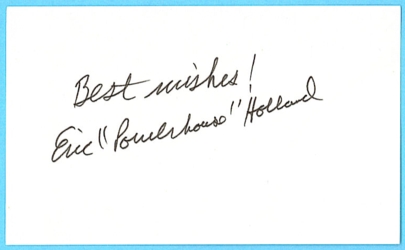 Best wishes!
Eric "Powerhouse" Holland